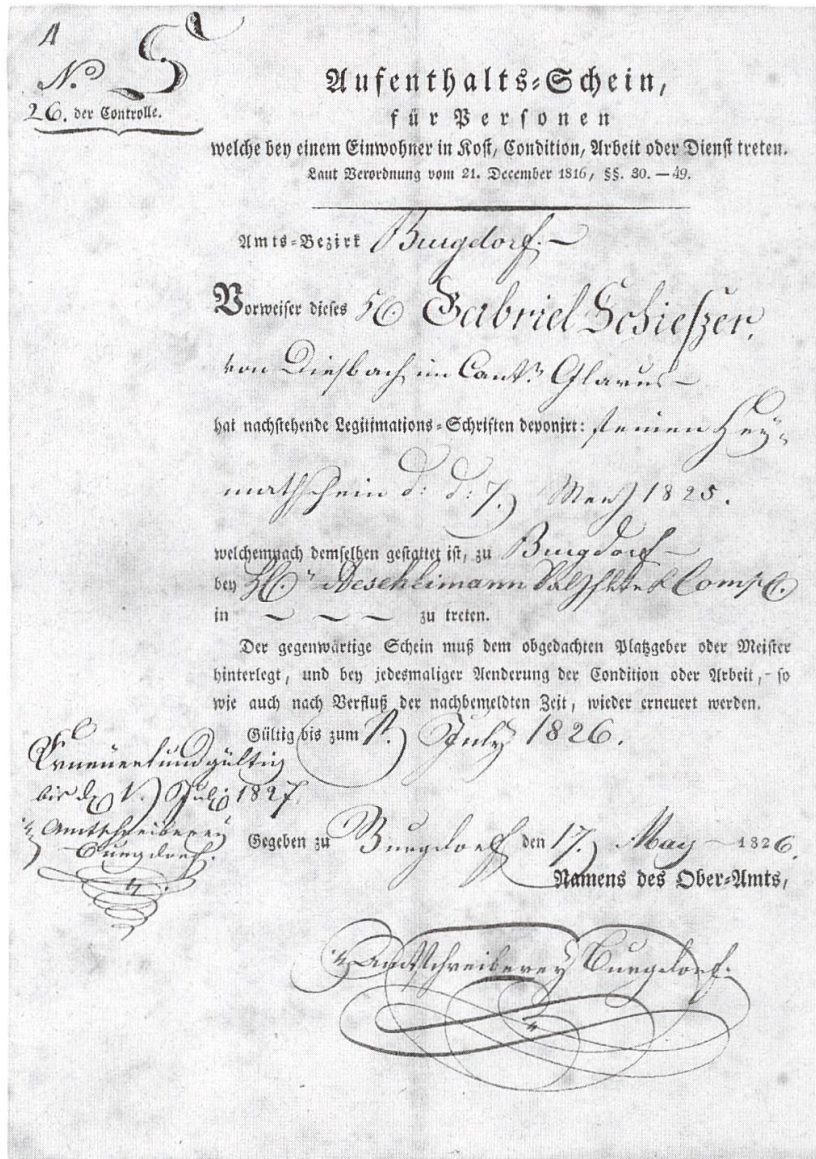 A
N.º S
26. der Controlle.
Aufenthalts-Schein,
für Personen
welche bey einem Einwohner in Kost, Condition, Arbeit oder Dienst treten.
Laut Verordnung vom 21. December 1816, §§. 30. — 49.
Amts-Bezirk Burgdorf. —
Vorweiser dieses Gabriel Schießer,
von Diesbach im Cant.ⁿ Glarus —
hat nachstehende Legitimations-Schriften deponirt: seinen Hey-
mathschein d: d: 7. Merz 1825.
welchemnach demselben gestattet ist, zu Burgdorf —
bey Aeschlimann & Comp.
in — — — zu treten.
Der gegenwärtige Schein muß dem obgedachten Platzgeber oder Meister
hinterlegt, und bey jedesmaliger Aenderung der Condition oder Arbeit, - so
wie auch nach Verfluß der nachbemeldten Zeit, wieder erneuert werden.
Gültig bis zum 1. July 1826.
Erneuert und gültig
bis d. 1. July 1827.
Amtschreiberey
Burgdorf.
Gegeben zu Burgdorf den 17. May — 1826.
Namens des Ober-Amts,
Amtschreiberey Burgdorf.